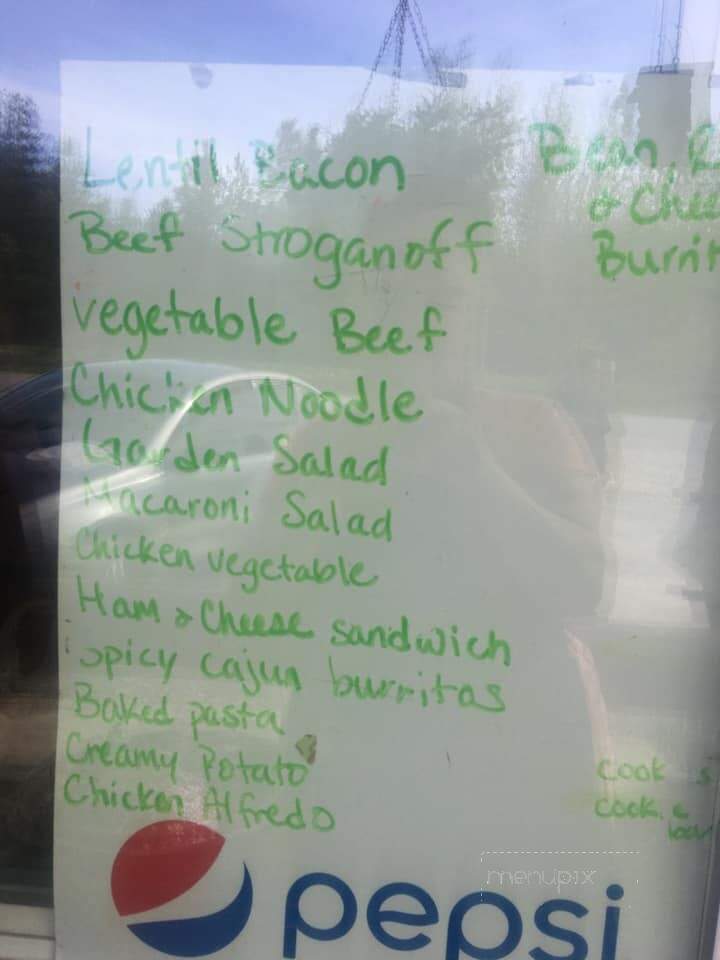 Lentil Bacon
Beef Stroganoff
vegetable Beef
Chicken Noodle
Garden Salad
Macaroni Salad
Chicken vegetable
Ham & Cheese sandwich
Spicy cajun burritos
Baked pasta
Creamy Potato
Chicken Alfredo
Bean, R
& Chee
Burrit
cook
cook
pepsi
menupix